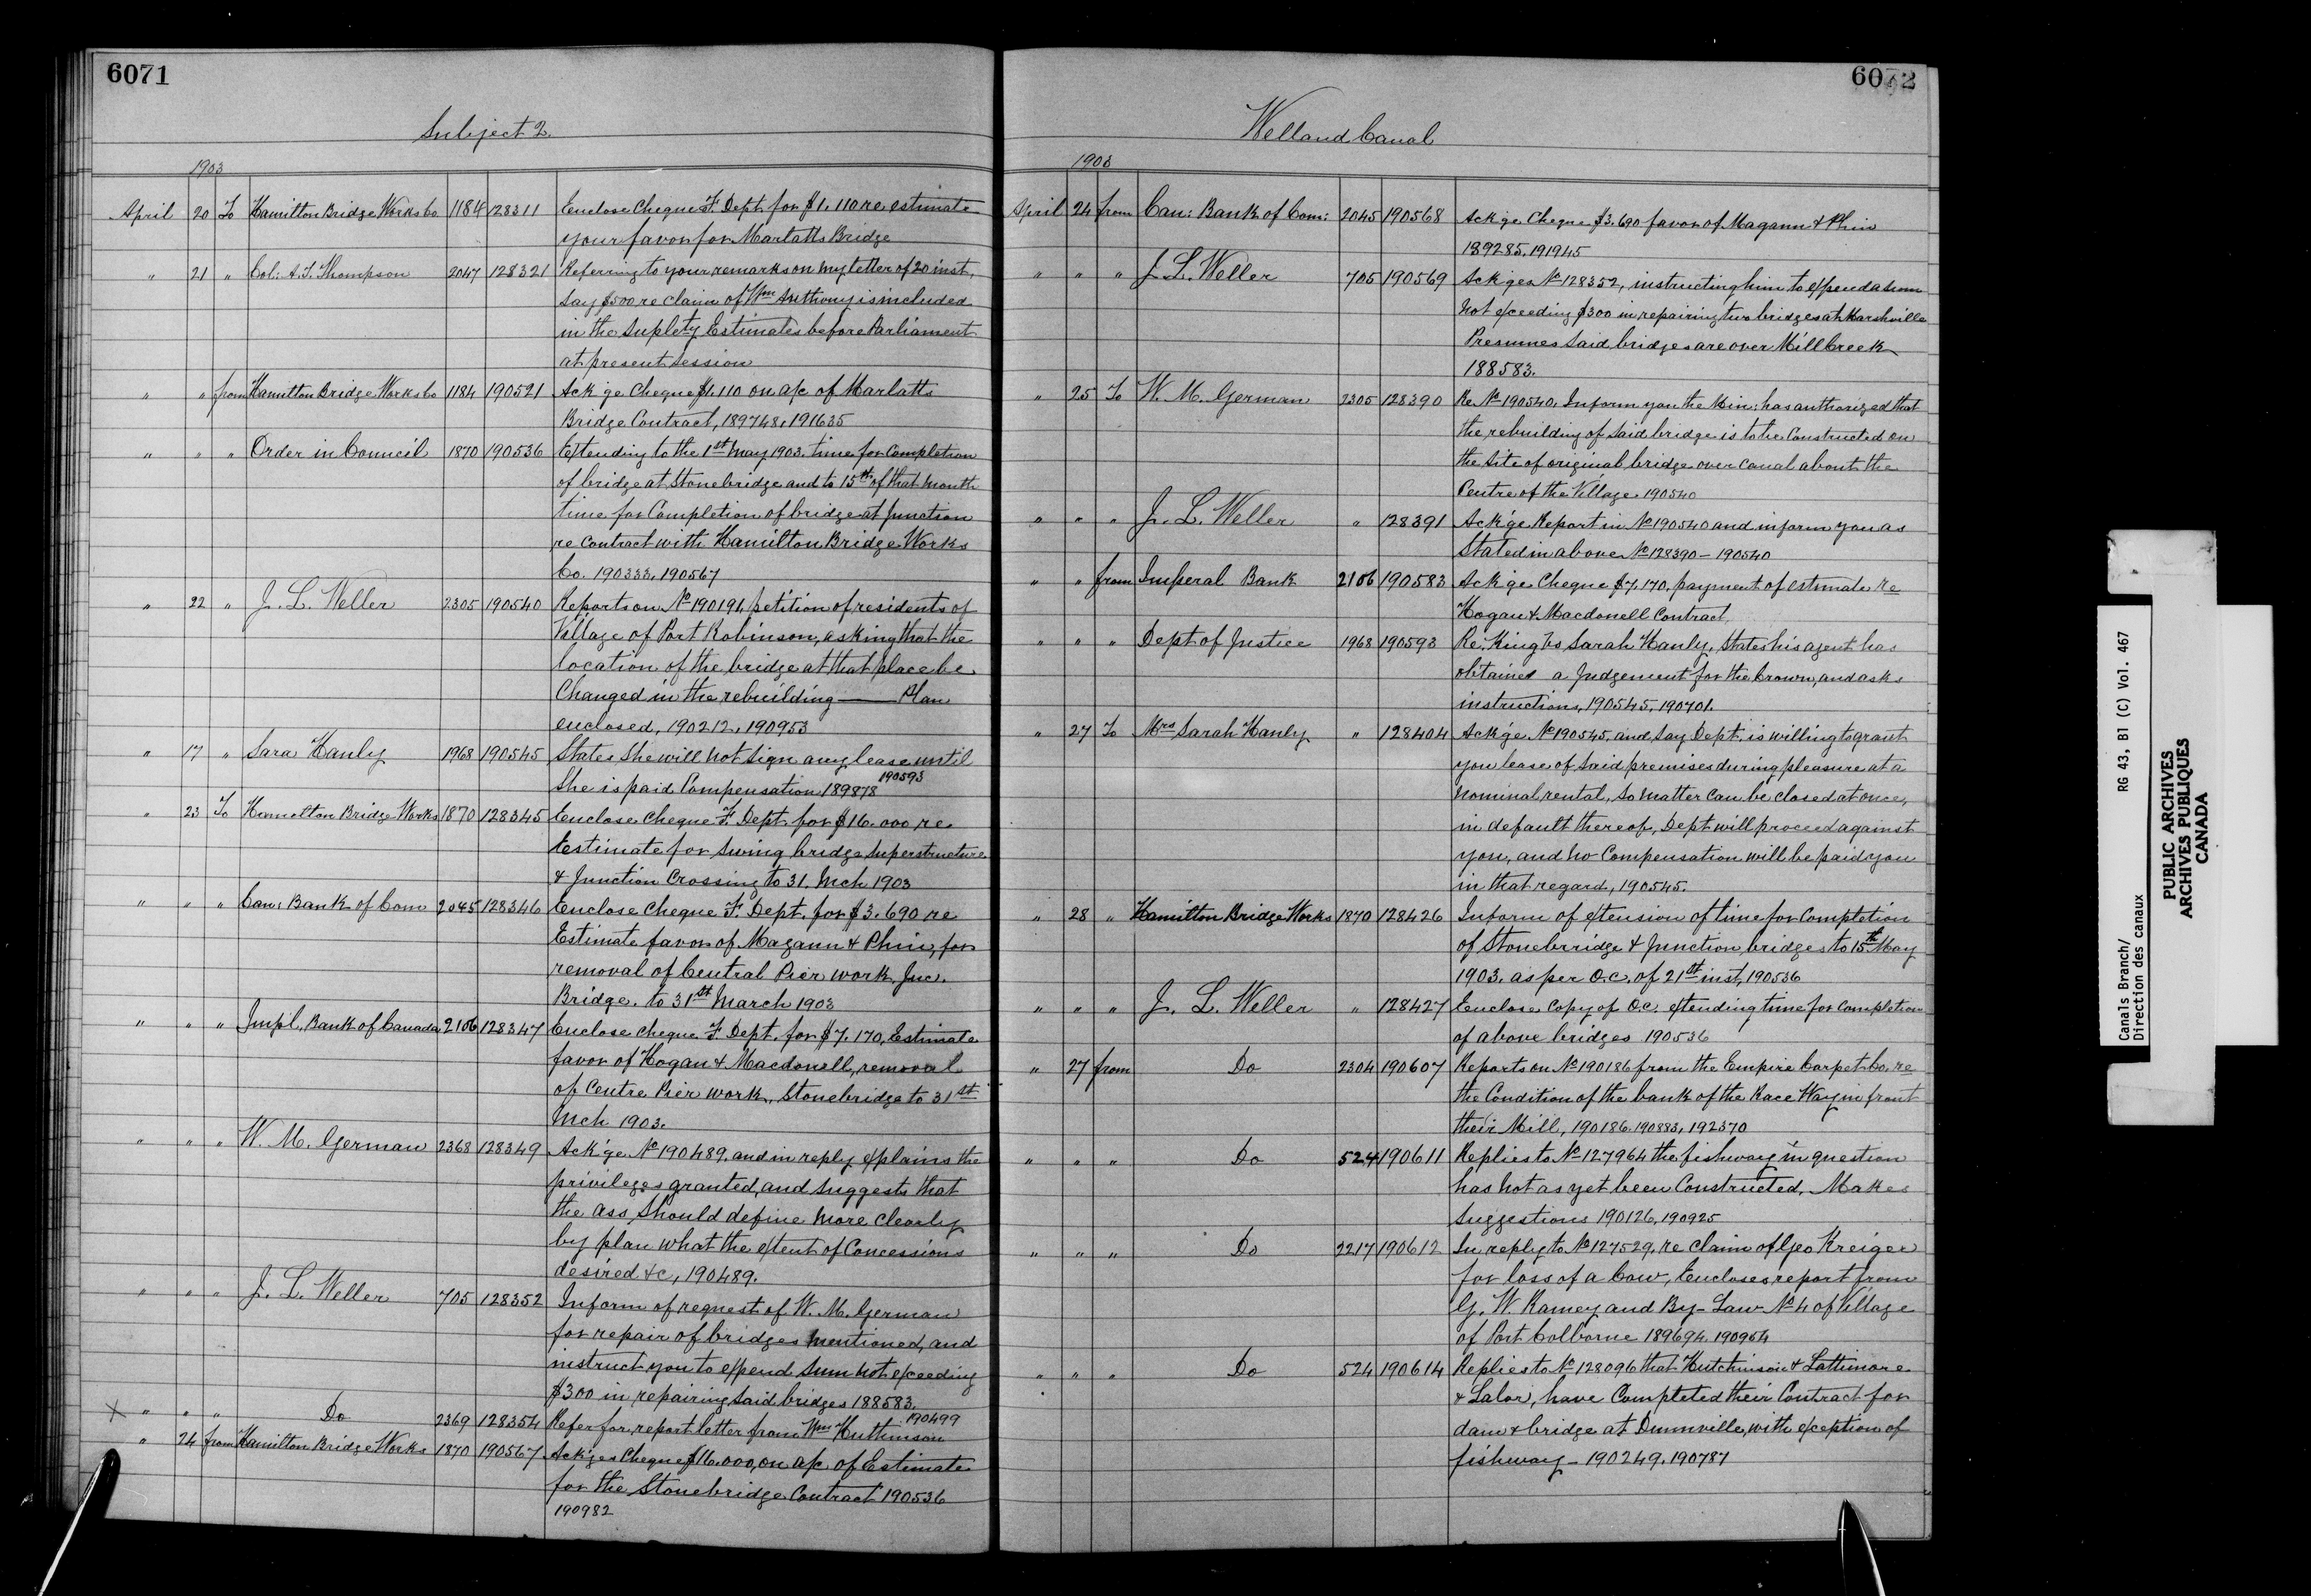 6071
Subject 2.
1903
April 20 To Hamilton Bridge Works Co 1184 128311 Enclose Cheque F. Dept. for $1.110 re estimate
your favor for Marlatts Bridge
" 21 " Col: A.T. Thompson 2047 128321 Referring to your remarks on my letter of 20 inst,
say $500 re claim of Wm Anthony is included
in the Suplety Estimates before Parliament
at present Session
" " from Hamilton Bridge Works Co 1184 190521 Ack'ge Cheque $1.110 on a/c of Marlatts
Bridge Contract, 189748, 191635
" " " Order in Council 1870 190536 Extending to the 1st May 1903. time for Completion
of bridge at Stonebridge and to 15th of that Month
time for Completion of bridge at Junction
re Contract with Hamilton Bridge Works
Co. 190333, 190567
" 22 " J. L. Weller 2305 190540 Reports on No 190191, petition of residents of
Village of Port Robinson, asking that the
location of the bridge at that place be
Changed in the rebuilding — Plan
enclosed, 190212, 190953
" 17 " Sara Hanly 1968 190545 States She will not Sign any lease until
She is paid Compensation 189878 190593
" 23 To Hamilton Bridge Works 1870 128345 Enclose Cheque F. Dept. for $16.000 re
Estimate for Swing bridge Superstructure
& Junction Crossing to 31. Mch 1903
" " " Can: Bank of Com 2045 128346 Enclose Cheque F. Dept. for $3.690 re
Estimate favor of Magann & Phin, for
removal of Central Pier work Junc.
Bridge. to 31st March 1903
" " " Impl. Bank of Canada 2106 128347 Enclose Cheque F. Dept. for $7.170, Estimate
favor of Hogan & Macdonell, removal
of Centre Pier work, Stonebridge to 31st
Mch 1903.
" " " W. M. German 2368 128349 Ack'ge No 190489. and in reply explains the
privileges granted, and Suggests that
the ass. Should define more Clearly
by plan what the extent of Concessions
desired &c, 190489.
" " " J. L. Weller 705 128352 Inform of request of W. M. German
for repair of bridges mentioned, and
instruct you to expend Sum not exceeding
$300 in repairing said bridges 188583.
X " " " Do 2369 128354 Refer for report letter from Wm Hutchinson 190499
" 24 from Hamilton Bridge Works 1870 190567 Ack'ges Cheque $16.000, on a/c. of Estimate
for the Stonebridge Contract 190536
190982
6072
Welland Canal
1903
April 24 from Can: Bank of Com: 2045 190568 Ack'ge Cheque $3.690 favor of Magann & Phin
189285, 191945
" " " J. L. Weller 705 190569 Ack'ges No 128352, instructing him to expend a sum
not exceeding $300 in repairing two bridges at Marshville
Presumes Said bridges are over Mill Creek
188583.
" 25 To W. M. German 2305 128390 Re No 190540. Inform you the Min: has authorized that
the rebuilding of Said bridge is to be Constructed on
the Site of original bridge over Canal about the
Centre of the Village. 190540
" " " J. L. Weller " 128391 Ack'ge Report in No 190540 and inform you as
Stated in above No 128390 – 190540
" " from Imperal Bank 2106 190583 Ack'ge Cheque $7,170, payment of estimate re
Hogan & Macdonell Contract
" " " Dept of Justice 1968 190593 Re: King vs Sarah Hanly, States his agent has
obtained a Judgement for the Crown, and asks
instructions, 190545, 190701.
" 27 To Mrs Sarah Hanly " 128404 Ack'ge No 190545, and say Dept. is willing to grant
you lease of Said premises during pleasure at a
Nominal rental, So matter Can be closed at once,
in default thereof, Dept will proceed against
you, and no Compensation will be paid you
in that regard, 190545.
" 28 " Hamilton Bridge Works 1870 128426 Inform of extension of time for Completion
of Stonebrridge & Junction bridges to 15th May
1903. as per O.C. of 21st inst, 190536
" " " J. L. Weller " 128427 Enclose Copy of O.C. extending time for Completion
of above bridges 190536
" 27 from Do 2304 190607 Reports on No 190186 from the Empire Carpet Co. re
the Condition of the bank of the Race Way in front
their Mill, 190186. 190883, 192370
" " " Do 524 190611 Replies to No 127964 the fishway in question
has not as yet been Constructed, Makes
Suggestions 190126, 190925
" " " Do 2217 190612 In reply to No 127529, re Claim of Geo Kreiger
for loss of a Cow, Encloses report from
G. W. Ramey and By-Law No 4 of Village
of Port Colborne 189694. 190964
" " " Do 524 190614 Replies to No 128096 that Hutchinson & Lattimore
& Lalor, have Completed their Contract for
dam & bridge at Dunnville, with exception of
fishway – 190249. 190787
Canals Branch/
Direction des canaux
RG 43, B1 (C) Vol. 467
PUBLIC ARCHIVES
ARCHIVES PUBLIQUES
CANADA